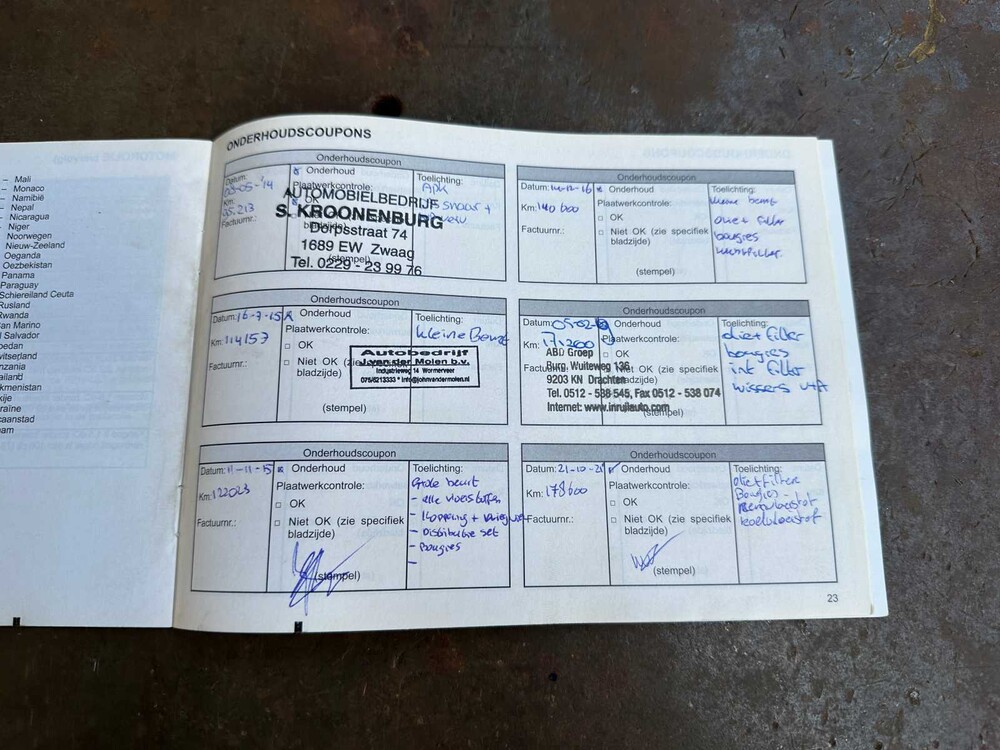 – Mali
– Monaco
– Namibië
– Nepal
– Nicaragua
– Niger
Noorwegen
Nieuw-Zeeland
Oeganda
Oezbekistan
Panama
Paraguay
Schiereiland Ceuta
Rusland
Rwanda
an Marino
Salvador
ONDERHOUDSCOUPONS
Onderhoudscoupon
Datum:
Onderhoud
Toelichting:
-05-'14
Plaatwerkcontrole:
APK
Km:
OK
snaar +
Factuurnr.:
bladzijde)
(stempel)
AUTOMOBIELBEDRIJF
S. KROONENBURG
Dorpsstraat 74
1689 EW Zwaag
Tel. 0229 - 23 99 76
Onderhoudscoupon
Datum: 16-7-15
Onderhoud
Toelichting:
Km: 114157
Plaatwerkcontrole:
kleine Beurt
OK
Factuurnr.:
Niet OK (zie specifiek
bladzijde)
(stempel)
Autobedrijf
J. van der Molen b.v.
Industrieweg 14 Wormerveer
075/6213333 * info@johnvandermolen.nl
Onderhoudscoupon
Datum: 11-11-15
Onderhoud
Toelichting:
Km: 122023
Plaatwerkcontrole:
Grote beurt
OK
- alle vloeistoffen
Factuurnr.:
Niet OK (zie specifiek
bladzijde)
- Distributie set
- Bougies
(stempel)
Onderhoudscoupon
Datum: 14-12-16
Onderhoud
Toelichting:
Km: 140 600
Plaatwerkcontrole:
kleine beurt
OK
oliet filter
Factuurnr.:
Niet OK (zie specifiek
bladzijde)
bougies
(stempel)
Onderhoudscoupon
Datum: 05-02-
Onderhoud
Toelichting:
Km: 171200
Plaatwerkcontrole:
oliet filter
OK
bougies
Factuurnr.:
Niet OK (zie specifiek
bladzijde)
int filter
wissers v+A
(stempel)
ABD Groep
Burg. Wuiteweg 136
9203 KN Drachten
Tel. 0512 - 538 545, Fax 0512 - 538 074
Internet: www.inruilauto.com
Onderhoudscoupon
Datum: 21-10-21
Onderhoud
Toelichting:
Km: 178600
Plaatwerkcontrole:
oliet filter
OK
Bougies -
Factuurnr.:
Niet OK (zie specifiek
bladzijde)
Remvloeistof
koelvloeistof
(stempel)
23